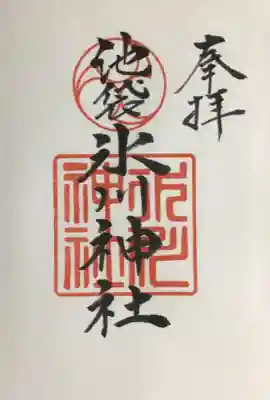 奉拝
池袋
氷川神社
氷川
神社